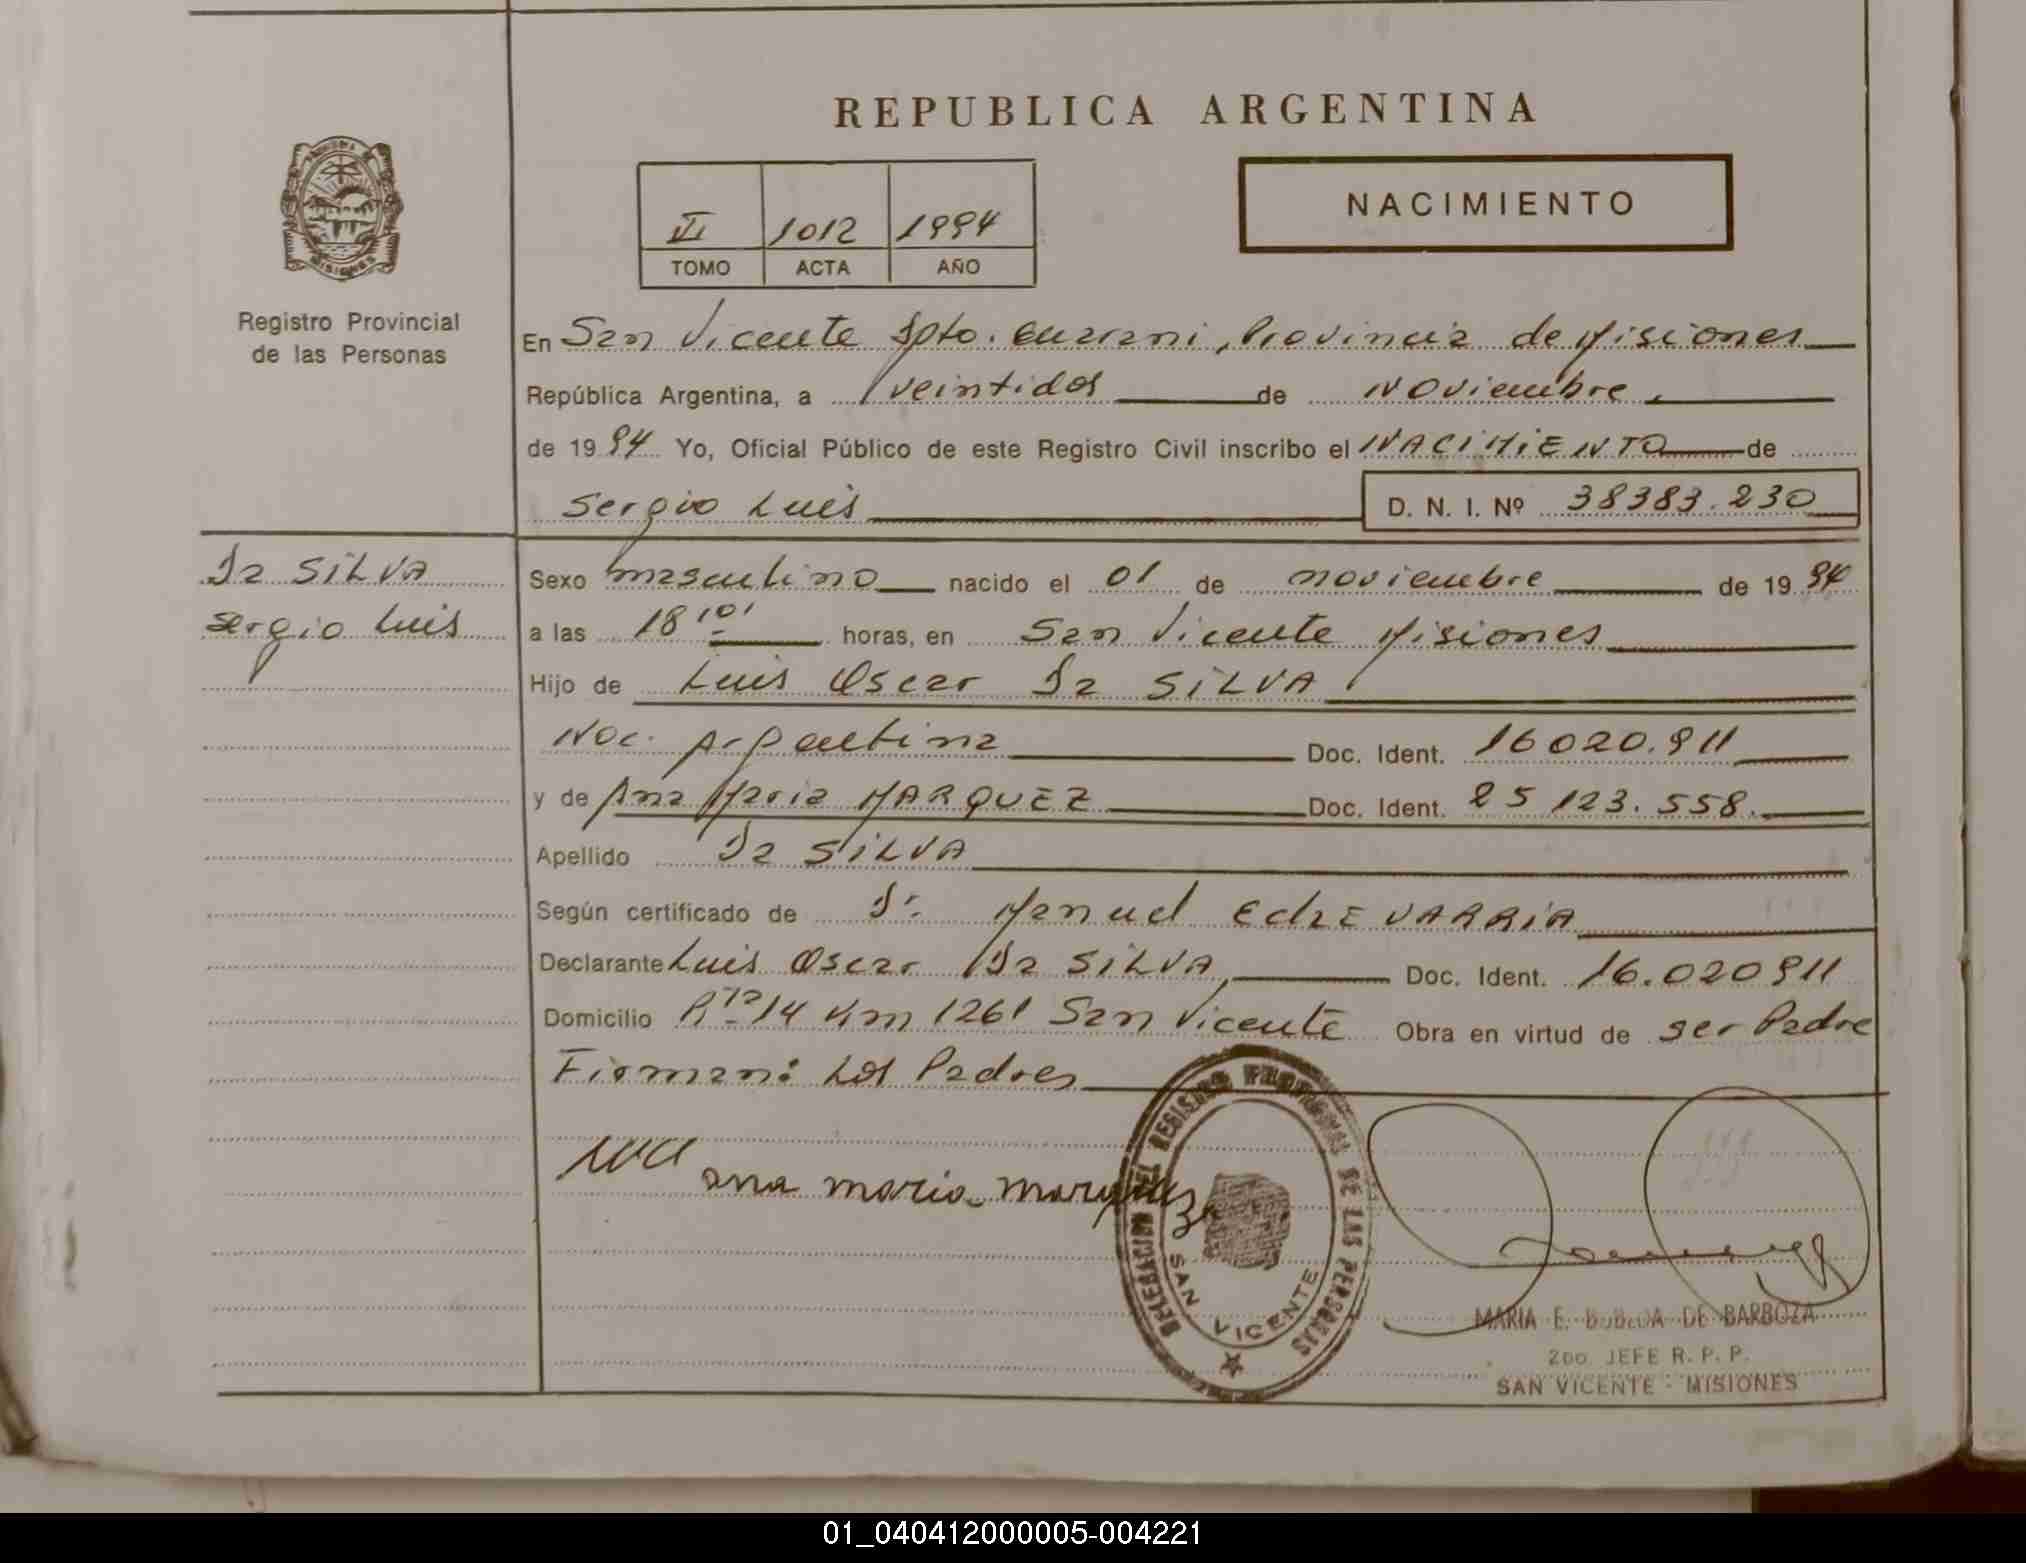 REPUBLICA ARGENTINA
NACIMIENTO
VI 1012 1994
TOMO ACTA AÑO
MISIONES
Registro Provincial
de las Personas
En San Vicente Dpto. Guarani, Provincia de Misiones
República Argentina, a veintidos de Noviembre
de 1994 Yo, Oficial Público de este Registro Civil inscribo el NACIMIENTO de
Sergio Luis D. N. I. Nº 38383.230
Da SILVA
Sergio Luis
Sexo masculino nacido el 01 de noviembre de 1994
a las 18,01 horas, en San Vicente Misiones
Hijo de Luis Oscar Da SILVA
Nac. Argentina Doc. Ident. 16020.911
y de Ana Maria MARQUEZ Doc. Ident. 25 123.558.
Apellido Da SILVA
Según certificado de Dr. Manuel EchEVARRIA
Declarante Luis Oscar Da SILVA, Doc. Ident. 16.020911
Domicilio Rta 14 Km 1261 San Vicente Obra en virtud de ser Padre
Firman: Los Padres
ana maria marquez
DELEGACION DEL REGISTRO PROVINCIAL DE LAS PERSONAS
SAN VICENTE
MARIA E. DE BARBOZA
2do. JEFE R. P. P.
SAN VICENTE - MISIONES
01_040412000005-004221